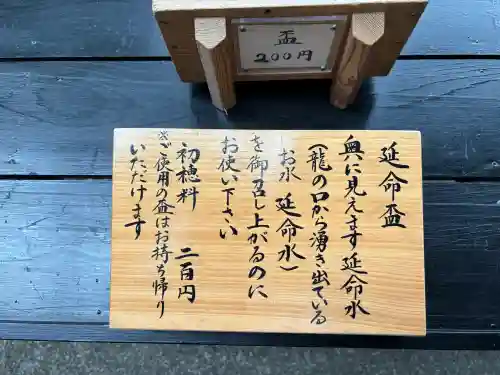 盃
200円
延命盃
奥に見えます延命水
(龍の口から湧き出ている
お水 延命水)
を御召し上がるのに
お使い下さい
初穂料 二百円
※ご使用の盃はお持ち帰り
いただけます